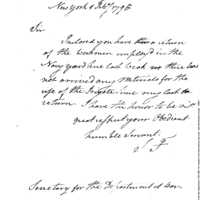 New York 1 Feby 1798
Sir
Inclosed you have a return
of the Workmen employd in the
Navy yard here last Week no there has
not arrived any Materials for the
use of the Frigate since my last
return I have the honor to be with
great respect your Obedient
humble Servant
J F
Secretary for the Department of War